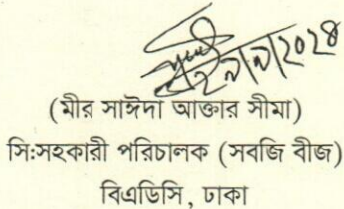 (মীর সাঈদা আক্তার সীমা)
সি:সহকারী পরিচালক (সবজি বীজ)
বিএডিসি, ঢাকা